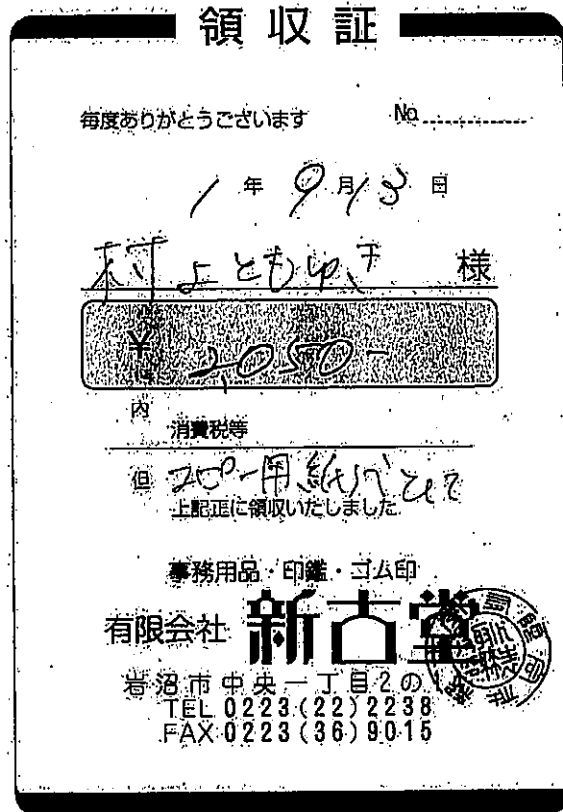 領収証
毎度ありがとうございます No.
1年9月13日
村上ともゆき 様
¥2,050-
内
消費税等
但 コピー用紙代として
上記正に領収いたしました
事務用品・印鑑・ゴム印
有限会社 新古堂
岩沼市中央一丁目2の
TEL 0223(22)2238
FAX 0223(36)9015